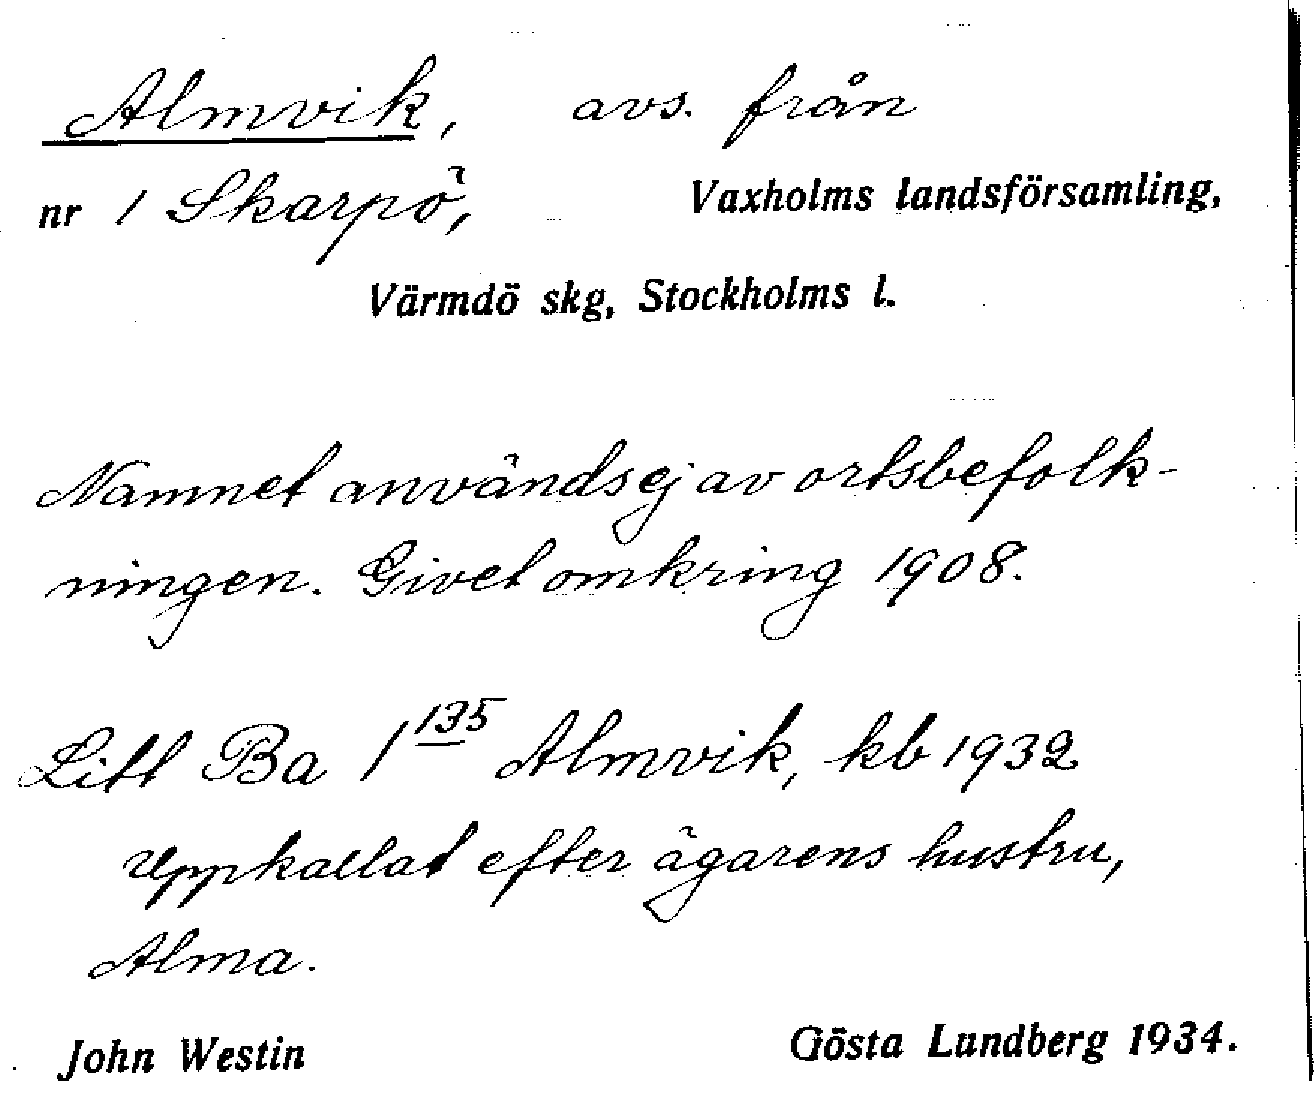 Almvik, avs. från
nr 1 Skarpö, Vaxholms landsförsamling,
Värmdö skg, Stockholms l.
Namnet användsej av ortsbefolk-
ningen. Givet omkring 1908.
Litt Ba 1 135 Almvik, kb 1932
Uppkallat efter ägarens hustru,
Alma.
John Westin Gösta Lundberg 1934.